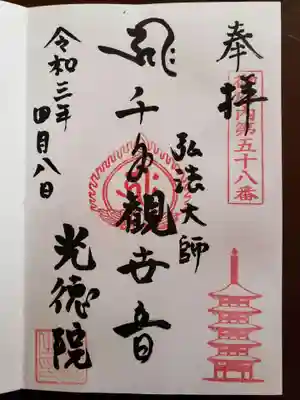 奉拝
第五十八番
弘法大師
千手觀世音
光徳院
令和三年
四月八日